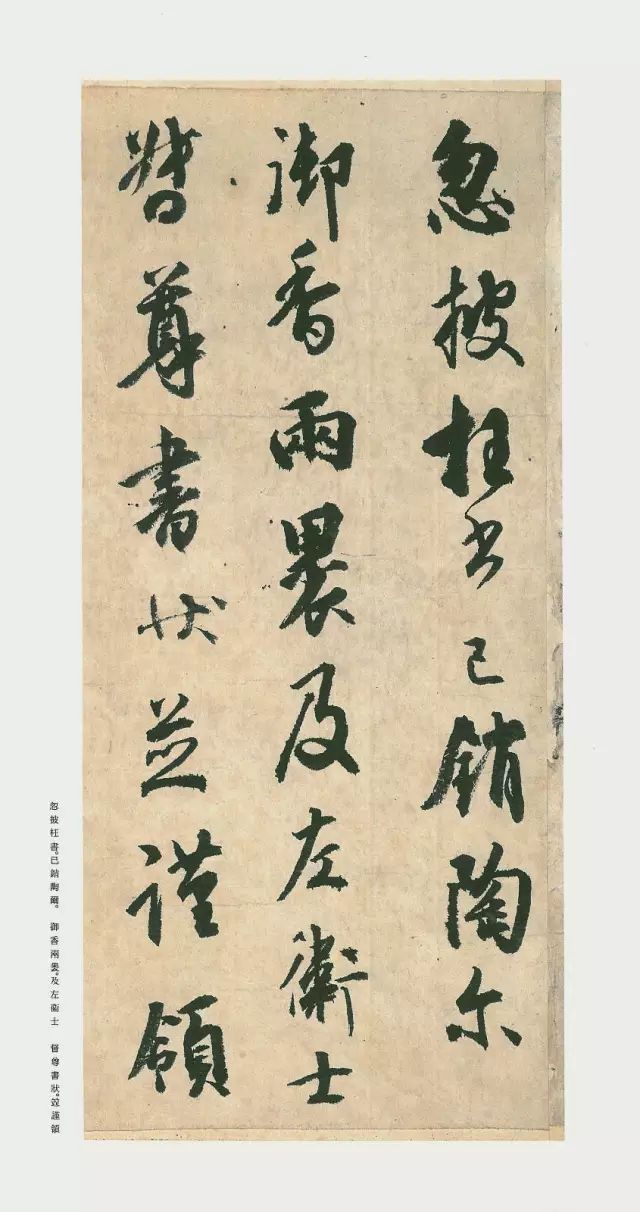 忽披枉书已銷陶尔
御香兩裹及左衞士
督尊書狀並謹領
忽披枉書。已銷陶爾。　御香兩裹。及左衞士　督尊書狀。竝謹領